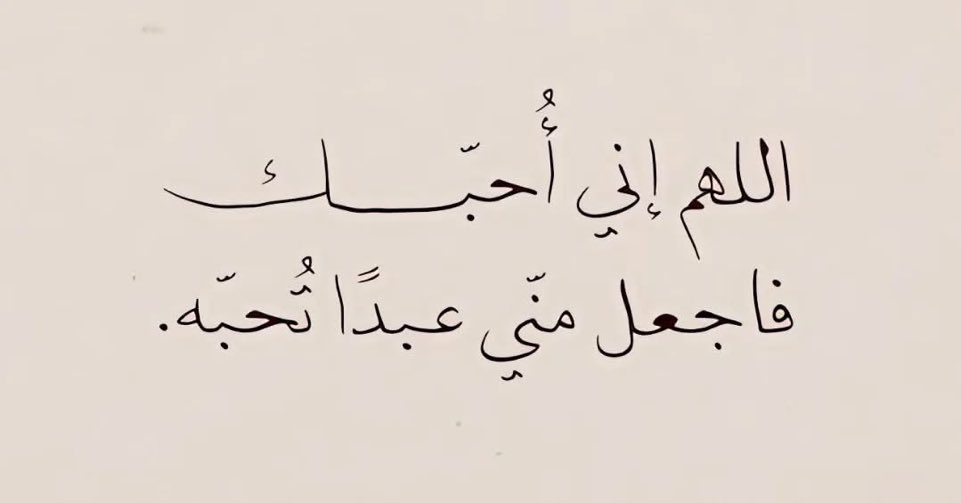 اللهم إني أُحبّك
فاجعل منّي عبدًا تُحبّه.